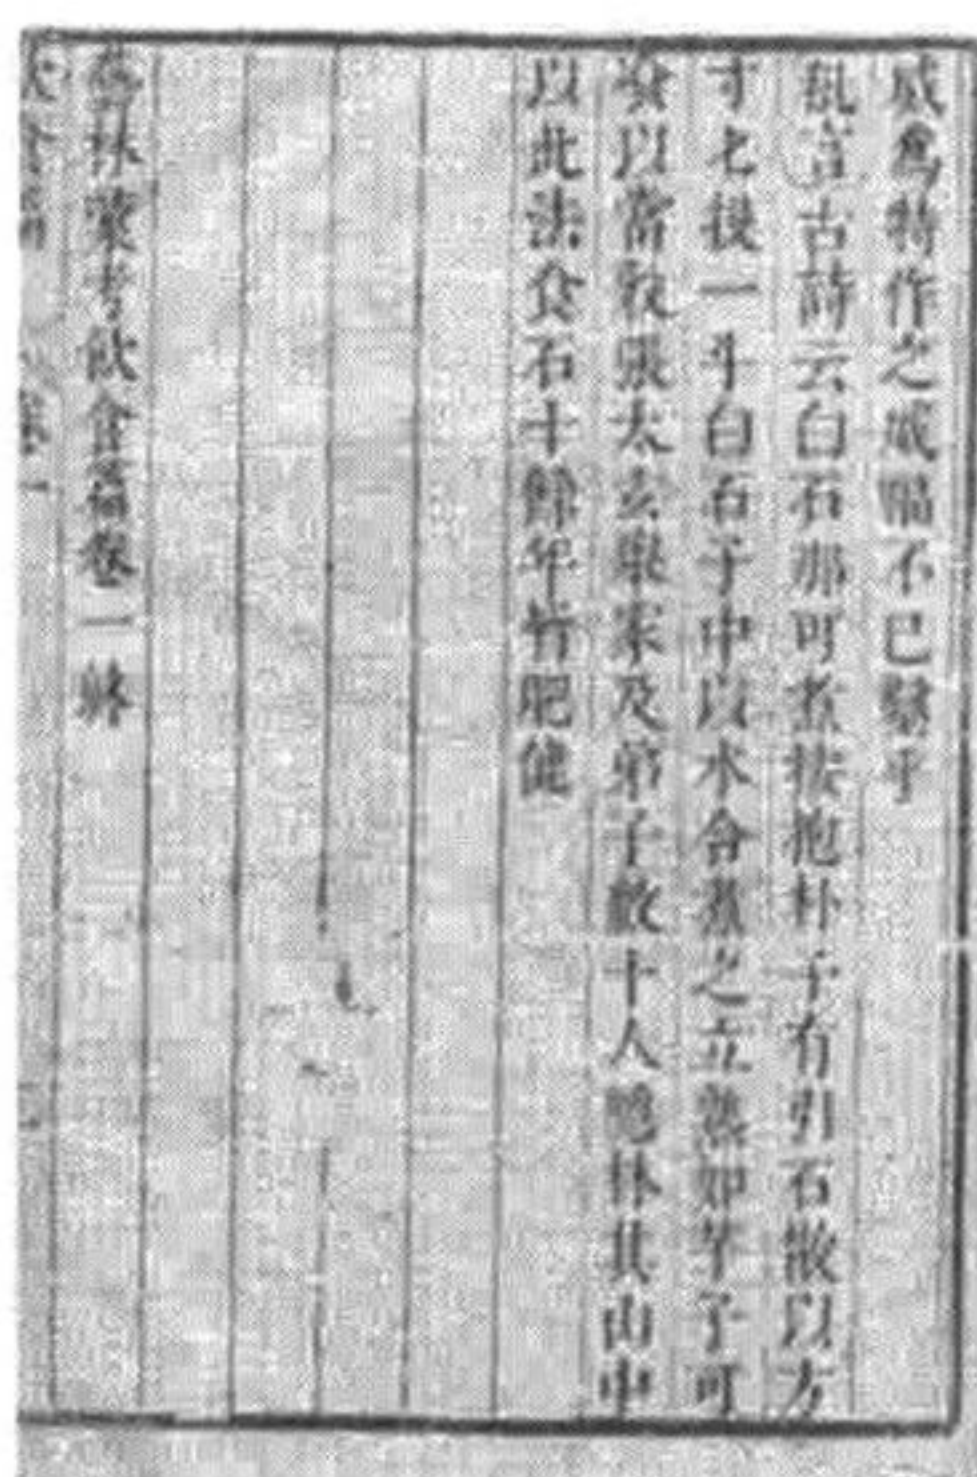 為特作之不已乎
飢言古詩云白石那可煮按抱朴子有引石散以方
寸匕投一斗白石子中以水合煮之立熟如芋子可
以當穀張太玄舉家及弟子數十人隱林其山中
以此法食石十餘年皆肥健
藝林彙考飲食篇卷一終